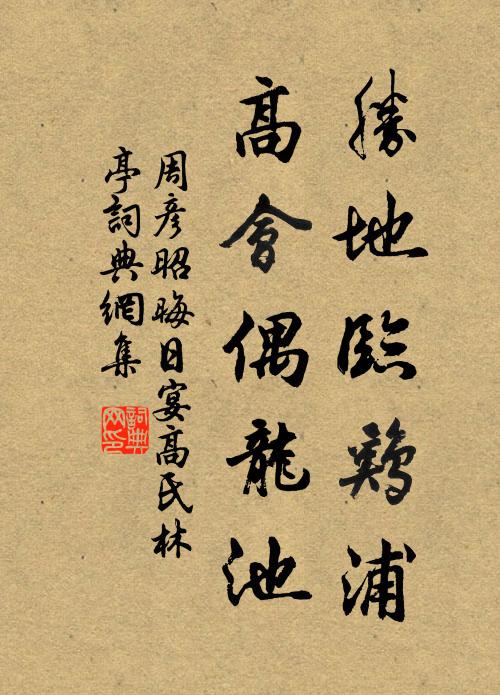 勝地臨鷄浦
高會偶龍池
周彥昭晦日宴高氏林
亭詞典網集
詞典
网印